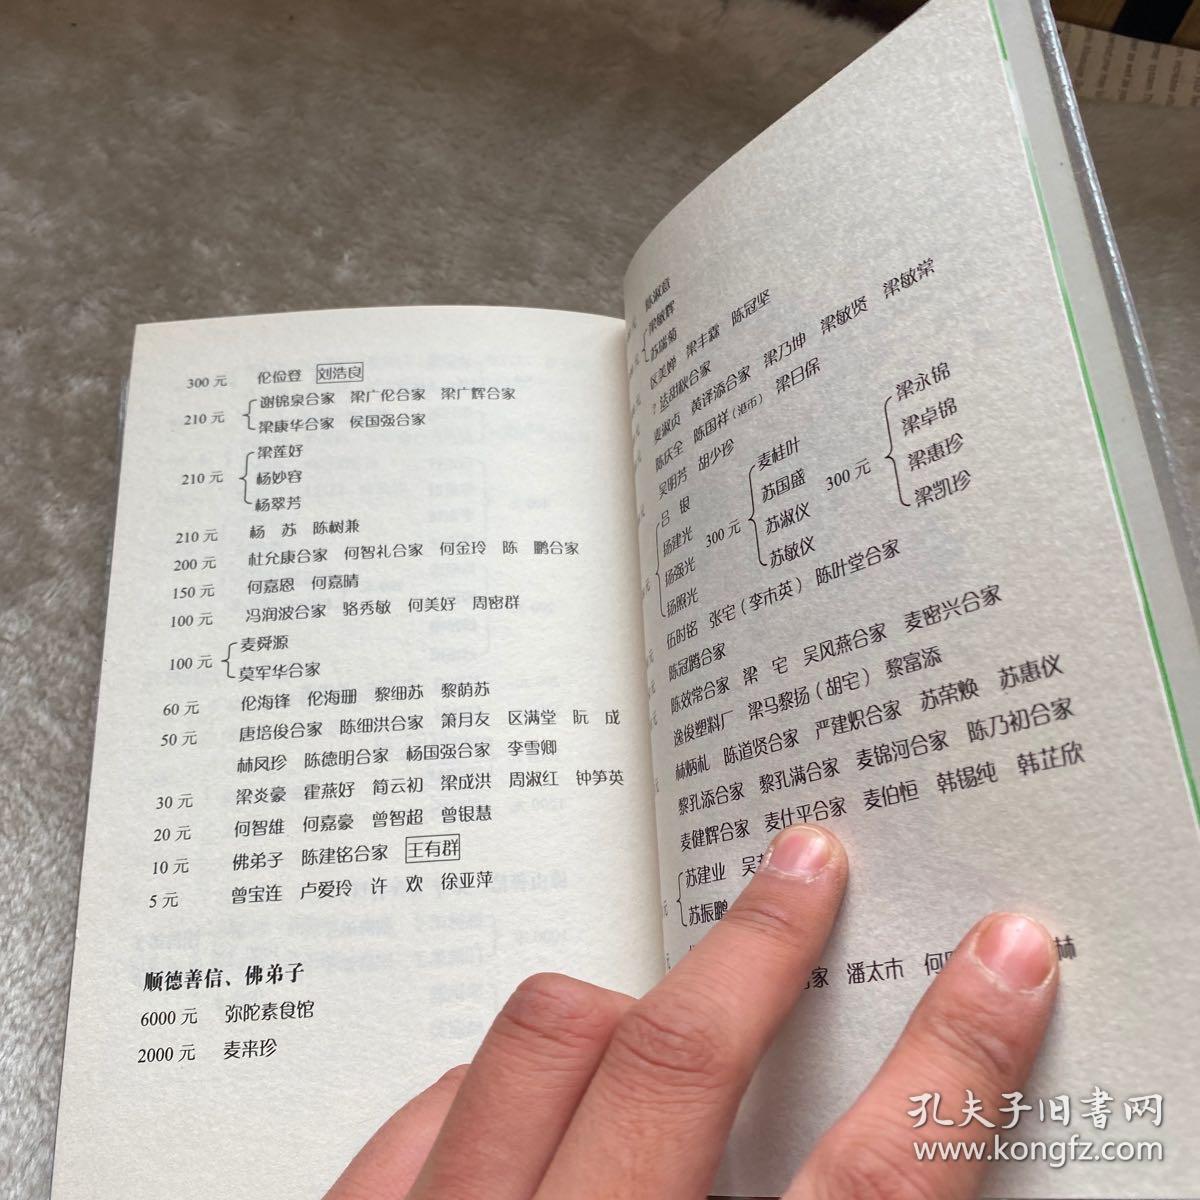 300 元 伦俭登 刘浩良
210 元 谢锦泉合家 梁广伦合家 梁广辉合家
梁康华合家 侯国强合家
210 元 梁莲好
杨妙容
杨翠芳
210 元 杨 苏 陈树兼
200 元 杜允康合家 何智礼合家 何金玲 陈 鹏合家
150 元 何嘉恩 何嘉晴
100 元 冯润波合家 骆秀敏 何美好 周密群
100 元 麦舜源
莫军华合家
60 元 伦海锋 伦海珊 黎细苏 黎荫苏
50 元 唐培俊合家 陈细洪合家 箫月友 区满堂 阮 成
林凤珍 陈德明合家 杨国强合家 李雪卿
30 元 梁炎豪 霍燕好 简云初 梁成洪 周淑红 钟笋英
20 元 何智雄 何嘉豪 曾智超 曾银慧
10 元 佛弟子 陈建铭合家 王有群
5 元 曾宝连 卢爱玲 许 欢 徐亚萍
顺德善信、佛弟子
6000 元 弥陀素食馆
2000 元 麦来珍
陈淑意
梁敏辉
苏瑞菊
区美婵 梁丰霖 陈冠坚
甜秋合家
麦淑贞 黄译添合家 梁乃坤 梁敏贤 梁敏棠
陈庆全 陈国祥(港币) 梁日保
吴明芳 胡少珍
吕 银
扬建光
扬强光
扬照光
300 元
麦桂叶
苏国盛
苏淑仪
苏敏仪
300 元
梁永锦
梁卓锦
梁惠珍
梁凯珍
伍时铭 张宅(李市英) 陈叶堂合家
陈冠腾合家
陈效常合家 梁 宅 吴风燕合家 麦密兴合家
逸俊塑料厂 梁马黎扬(胡宅) 黎富添
林炳札 陈道贤合家 严建炽合家 苏荣焕 苏惠仪
黎孔添合家 黎孔满合家 麦锦河合家 陈乃初合家
麦健辉合家 麦什平合家 麦伯恒 韩锡纯 韩芷欣
元 苏建业 吴
苏振鹏
家 潘太市 何 林
孔夫子旧书网
www.kongfz.com